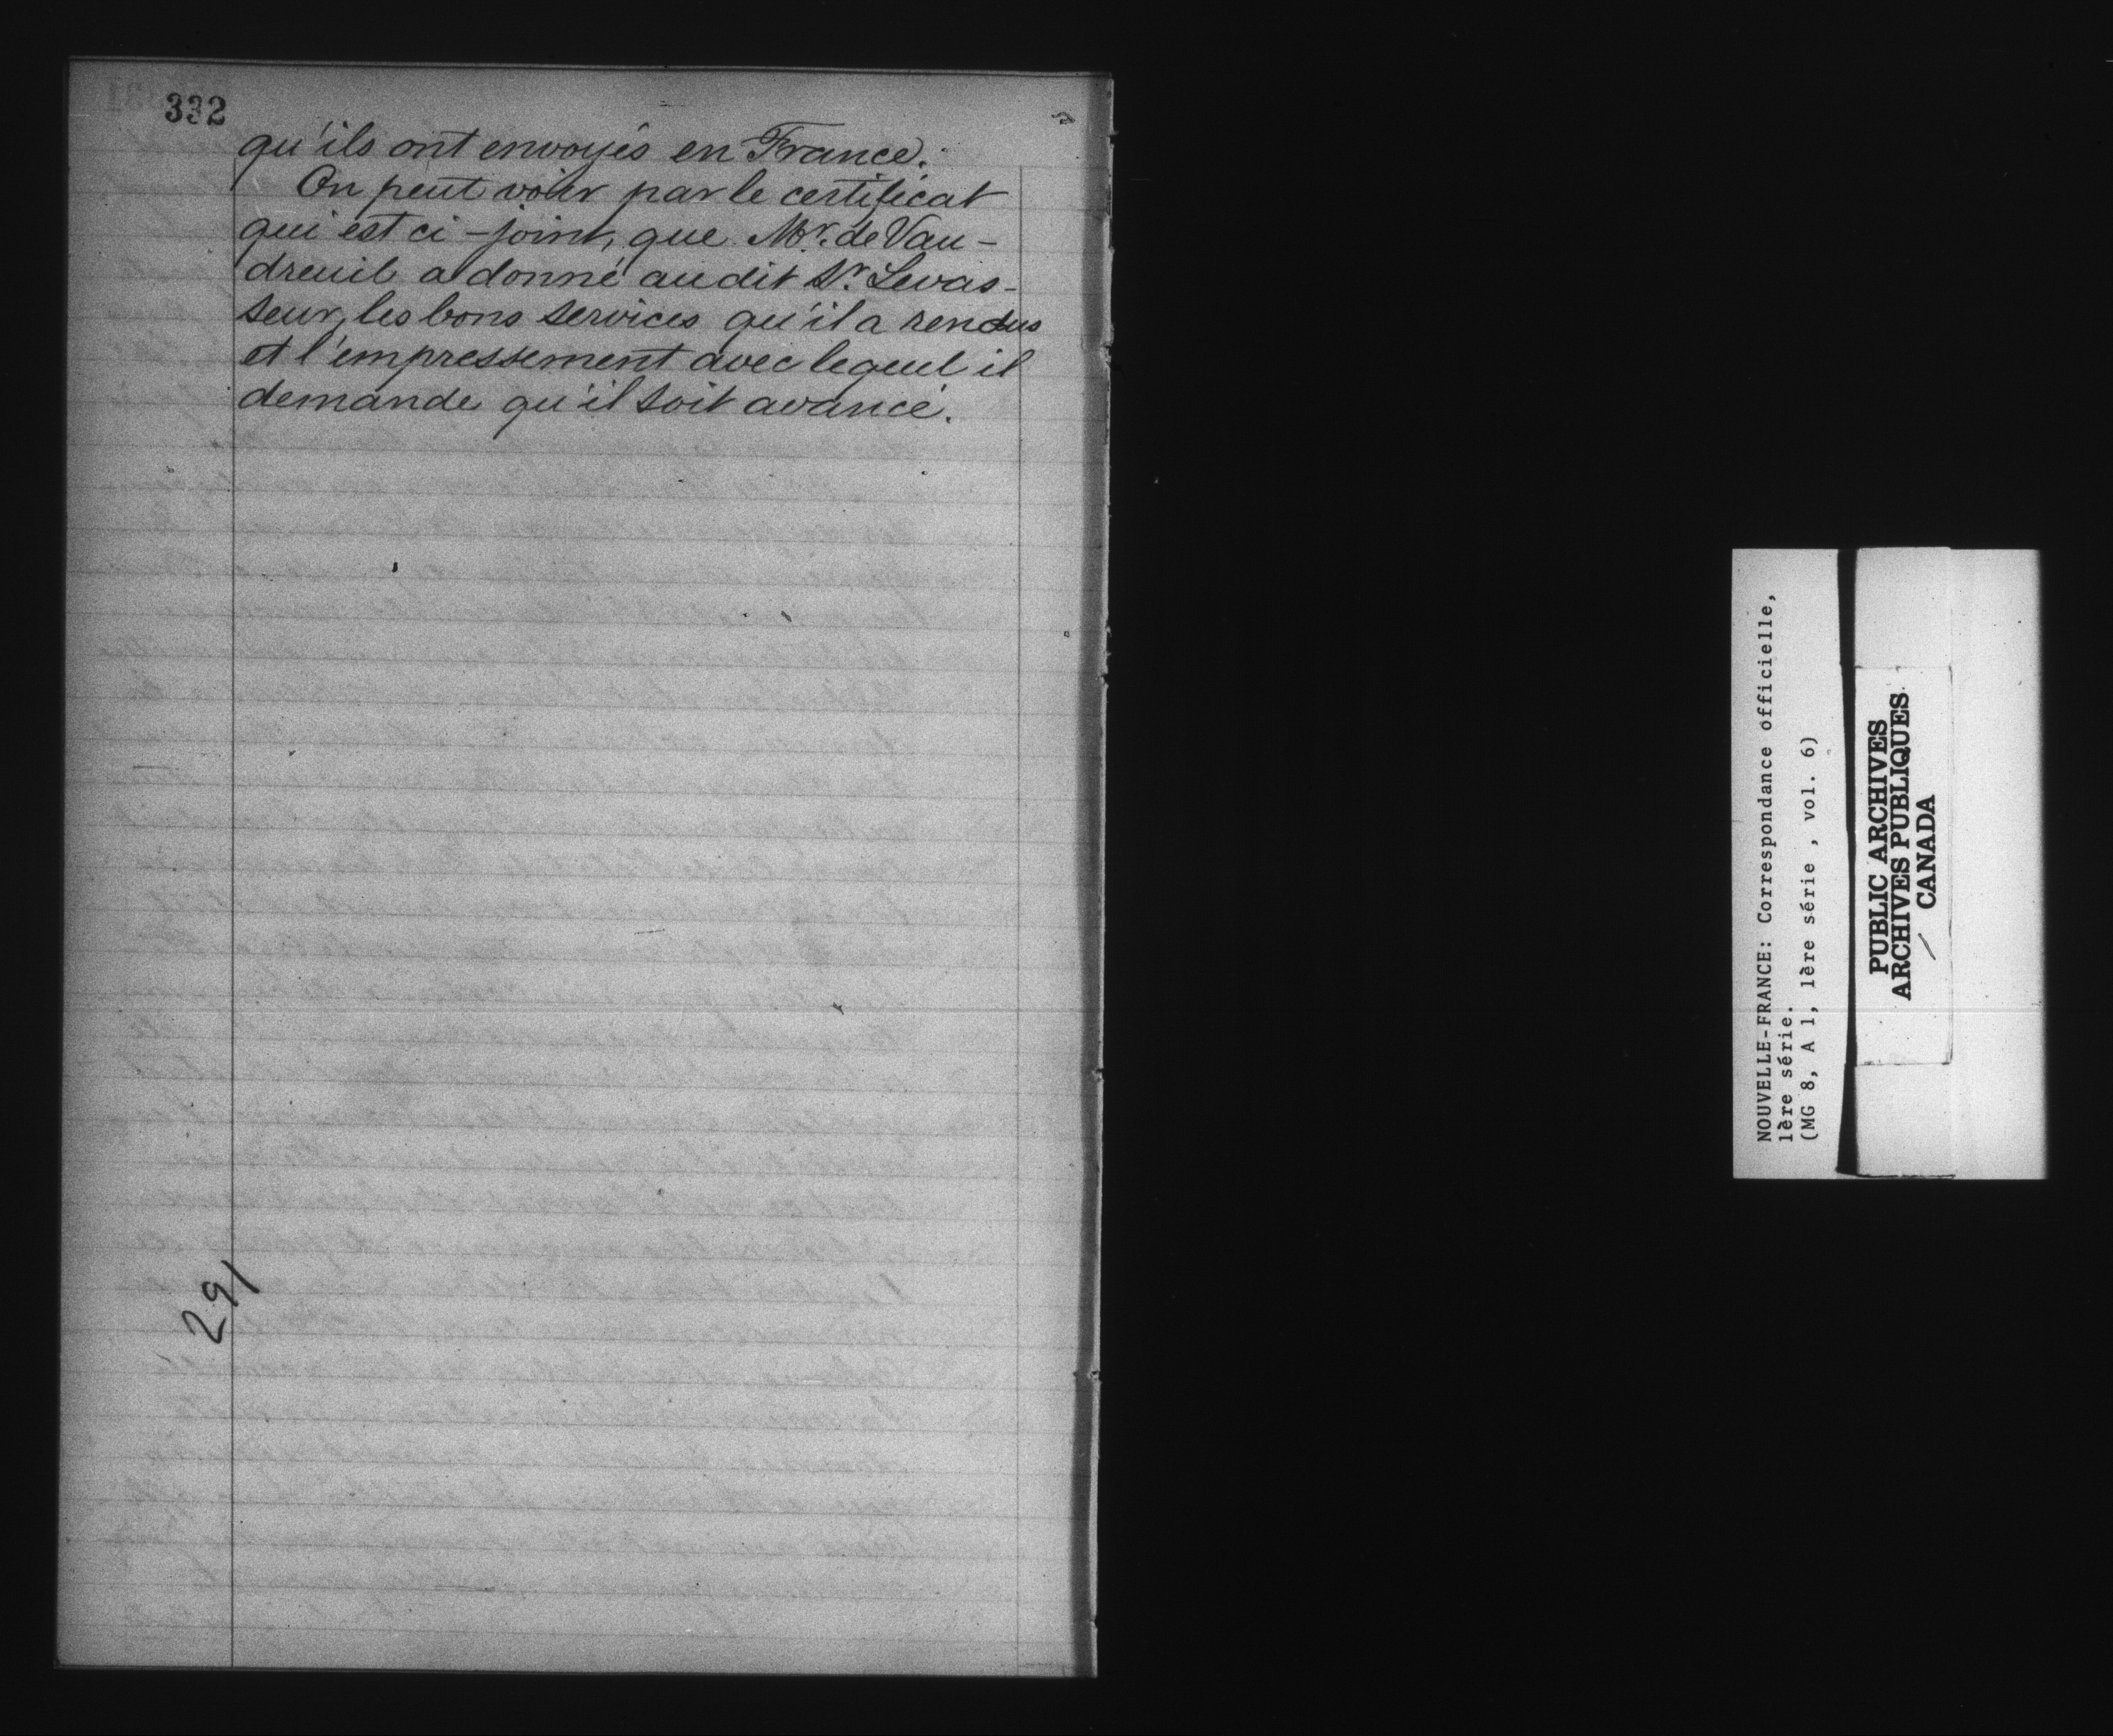 332
qu'ils ont envoyés en France.
On peut voir par le certificat
qui est ci-joint, que Mr. de Vau-
dreuil a donné audit Sr. Levas-
seur, les bons services qu'il a rendus
et l'empressement avec lequel il
demande qu'il soit avancé.
291
NOUVELLE-FRANCE: Correspondance officielle,
1ère série.
(MG 8, A 1, 1ère série , vol. 6)
PUBLIC ARCHIVES
ARCHIVES PUBLIQUES
CANADA